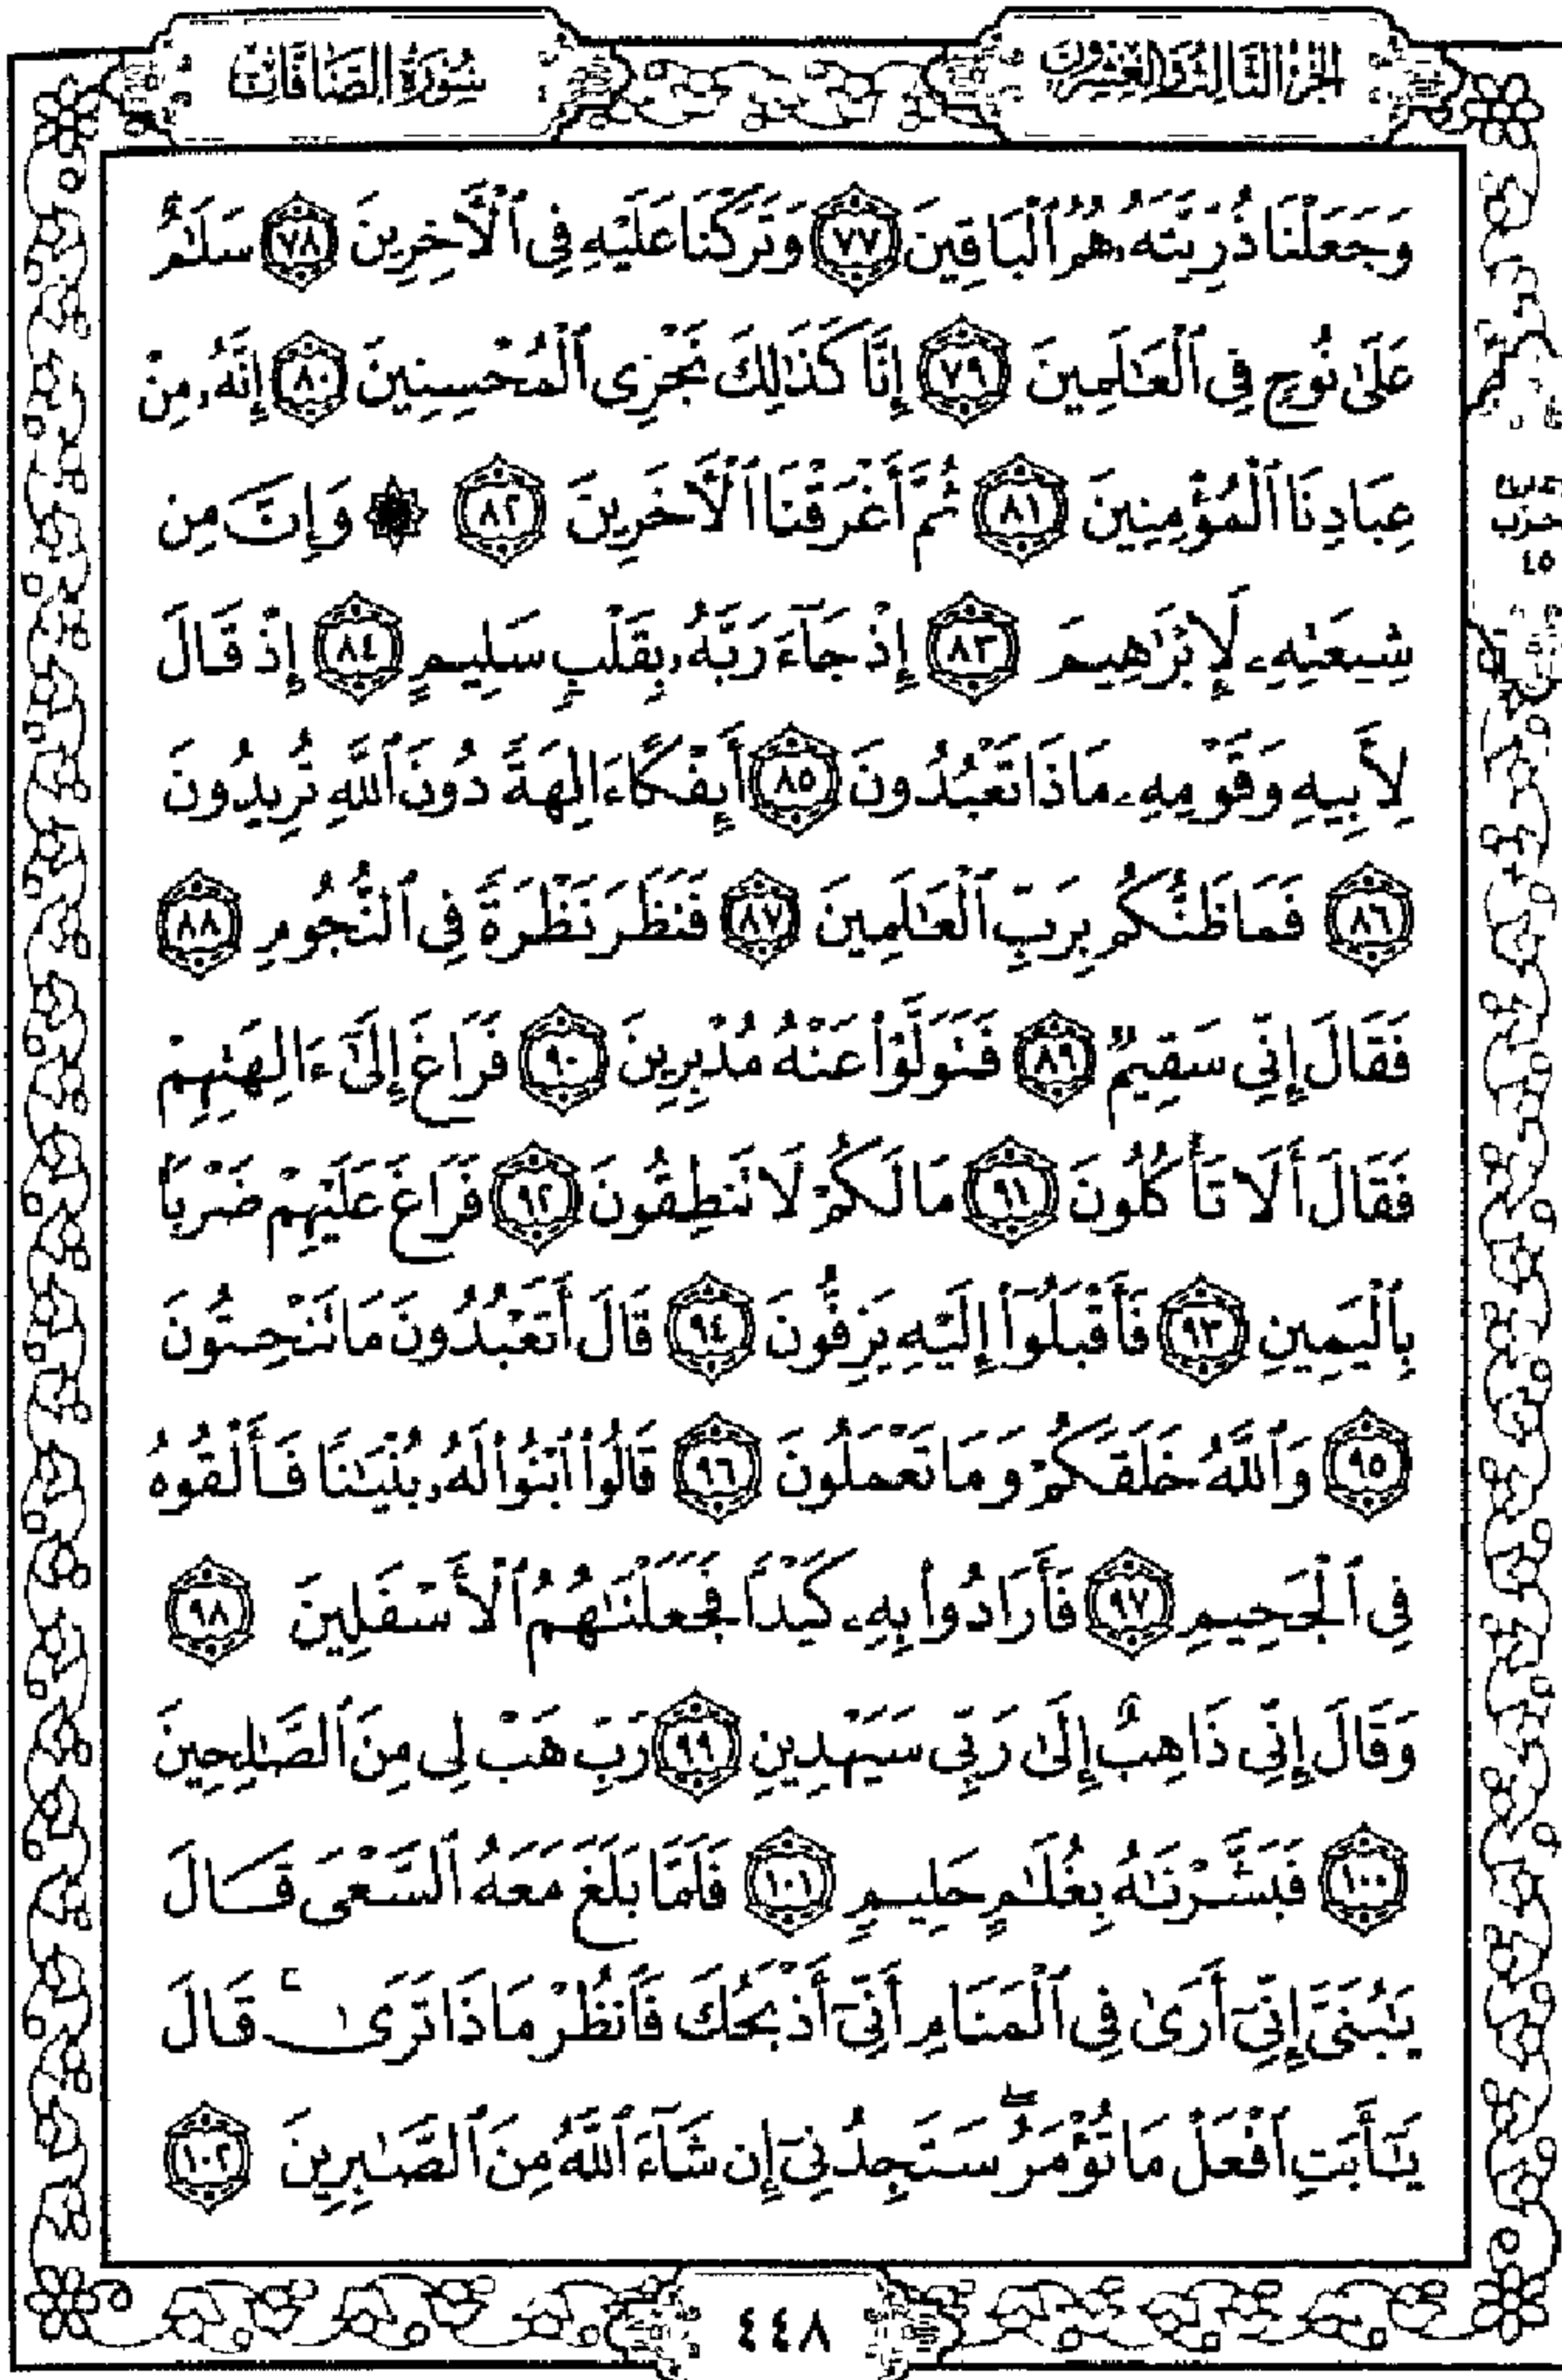 الجزء الثالث والعشرون
سورة الصافات
وَجَعَلْنَا ذُرِّيَّتَهُۥ هُمُ ٱلْبَاقِينَ ٧٧ وَتَرَكْنَا عَلَيْهِ فِى ٱلْأَخِرِينَ ٧٨ سَلَٰمٌ
عَلَىٰ نُوحٍ فِى ٱلْعَٰلَمِينَ ٧٩ إِنَّا كَذَٰلِكَ نَجْزِى ٱلْمُحْسِنِينَ ٨٠ إِنَّهُۥ مِنْ
عِبَادِنَا ٱلْمُؤْمِنِينَ ٨١ ثُمَّ أَغْرَقْنَا ٱلْأَخَرِينَ ٨٢ ۞ وَإِنَّ مِن
شِيعَتِهِۦ لَإِبْرَٰهِيمَ ٨٣ إِذْ جَآءَ رَبَّهُۥ بِقَلْبٍ سَلِيمٍ ٨٤ إِذْ قَالَ
لِأَبِيهِ وَقَوْمِهِۦ مَاذَا تَعْبُدُونَ ٨٥ أَئِفْكًا ءَالِهَةً دُونَ ٱللَّهِ تُرِيدُونَ
٨٦ فَمَا ظَنُّكُم بِرَبِّ ٱلْعَٰلَمِينَ ٨٧ فَنَظَرَ نَظْرَةً فِى ٱلنُّجُومِ ٨٨
فَقَالَ إِنِّى سَقِيمٌ ٨٩ فَتَوَلَّوْا۟ عَنْهُ مُدْبِرِينَ ٩٠ فَرَاغَ إِلَىٰٓ ءَالِهَتِهِمْ
فَقَالَ أَلَا تَأْكُلُونَ ٩١ مَا لَكُمْ لَا تَنطِقُونَ ٩٢ فَرَاغَ عَلَيْهِمْ ضَرْبًۢا
بِٱلْيَمِينِ ٩٣ فَأَقْبَلُوٓا۟ إِلَيْهِ يَزِفُّونَ ٩٤ قَالَ أَتَعْبُدُونَ مَا تَنْحِتُونَ
٩٥ وَٱللَّهُ خَلَقَكُمْ وَمَا تَعْمَلُونَ ٩٦ قَالُوا۟ ٱبْنُوا۟ لَهُۥ بُنْيَٰنًا فَأَلْقُوهُ
فِى ٱلْجَحِيمِ ٩٧ فَأَرَادُوا۟ بِهِۦ كَيْدًا فَجَعَلْنَٰهُمُ ٱلْأَسْفَلِينَ ٩٨
وَقَالَ إِنِّى ذَاهِبٌ إِلَىٰ رَبِّى سَيَهْدِينِ ٩٩ رَبِّ هَبْ لِى مِنَ ٱلصَّٰلِحِينَ
١٠٠ فَبَشَّرْنَٰهُ بِغُلَٰمٍ حَلِيمٍ ١٠١ فَلَمَّا بَلَغَ مَعَهُ ٱلسَّعْىَ قَالَ
يَٰبُنَىَّ إِنِّىٓ أَرَىٰ فِى ٱلْمَنَامِ أَنِّىٓ أَذْبَحُكَ فَٱنظُرْ مَاذَا تَرَىٰ ۚ قَالَ
يَٰٓأَبَتِ ٱفْعَلْ مَا تُؤْمَرُ ۖ سَتَجِدُنِىٓ إِن شَآءَ ٱللَّهُ مِنَ ٱلصَّٰبِرِينَ ١٠٢
حزب
٤٥
٤٤٨